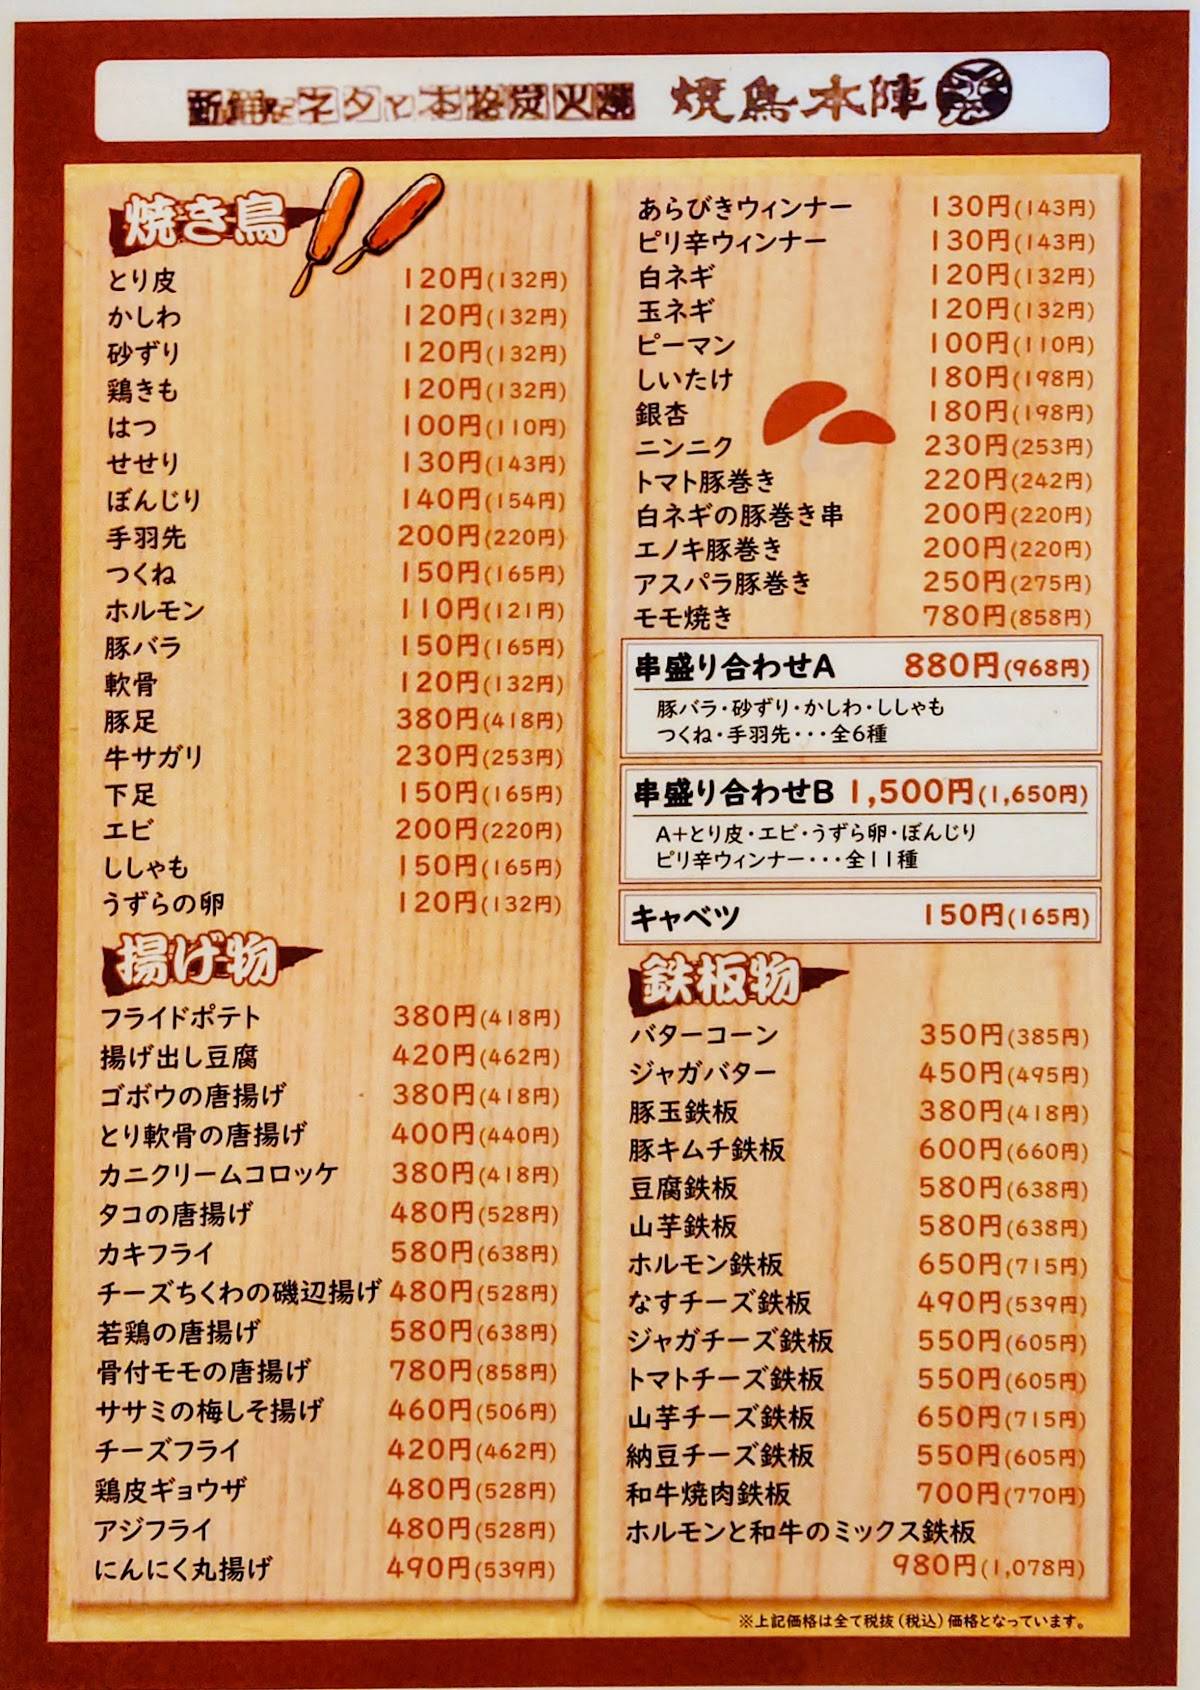 新鮮なネタと本格炭火焼 焼鳥本陣
焼き鳥
とり皮 120円(132円)
かしわ 120円(132円)
砂ずり 120円(132円)
鶏きも 120円(132円)
はつ 100円(110円)
せせり 130円(143円)
ぼんじり 140円(154円)
手羽先 200円(220円)
つくね 150円(165円)
ホルモン 110円(121円)
豚バラ 150円(165円)
軟骨 120円(132円)
豚足 380円(418円)
牛サガリ 230円(253円)
下足 150円(165円)
エビ 200円(220円)
ししゃも 150円(165円)
うずらの卵 120円(132円)
揚げ物
フライドポテト 380円(418円)
揚げ出し豆腐 420円(462円)
ゴボウの唐揚げ 380円(418円)
とり軟骨の唐揚げ 400円(440円)
カニクリームコロッケ 380円(418円)
タコの唐揚げ 480円(528円)
カキフライ 580円(638円)
チーズちくわの磯辺揚げ 480円(528円)
若鶏の唐揚げ 580円(638円)
骨付モモの唐揚げ 780円(858円)
ササミの梅しそ揚げ 460円(506円)
チーズフライ 420円(462円)
鶏皮ギョウザ 480円(528円)
アジフライ 480円(528円)
にんにく丸揚げ 490円(539円)
あらびきウィンナー 130円(143円)
ピリ辛ウィンナー 130円(143円)
白ネギ 120円(132円)
玉ネギ 120円(132円)
ピーマン 100円(110円)
しいたけ 180円(198円)
銀杏 180円(198円)
ニンニク 230円(253円)
トマト豚巻き 220円(242円)
白ネギの豚巻き串 200円(220円)
エノキ豚巻き 200円(220円)
アスパラ豚巻き 250円(275円)
モモ焼き 780円(858円)
串盛り合わせA 880円(968円)
豚バラ・砂ずり・かしわ・ししゃも
つくね・手羽先・・・全6種
串盛り合わせB 1,500円(1,650円)
A+とり皮・エビ・うずら卵・ぼんじり
ピリ辛ウィンナー・・・全11種
キャベツ 150円(165円)
鉄板物
バターコーン 350円(385円)
ジャガバター 450円(495円)
豚玉鉄板 380円(418円)
豚キムチ鉄板 600円(660円)
豆腐鉄板 580円(638円)
山芋鉄板 580円(638円)
ホルモン鉄板 650円(715円)
なすチーズ鉄板 490円(539円)
ジャガチーズ鉄板 550円(605円)
トマトチーズ鉄板 550円(605円)
山芋チーズ鉄板 650円(715円)
納豆チーズ鉄板 550円(605円)
和牛焼肉鉄板 700円(770円)
ホルモンと和牛のミックス鉄板
980円(1,078円)
※上記価格は全て税抜(税込)価格となっています。